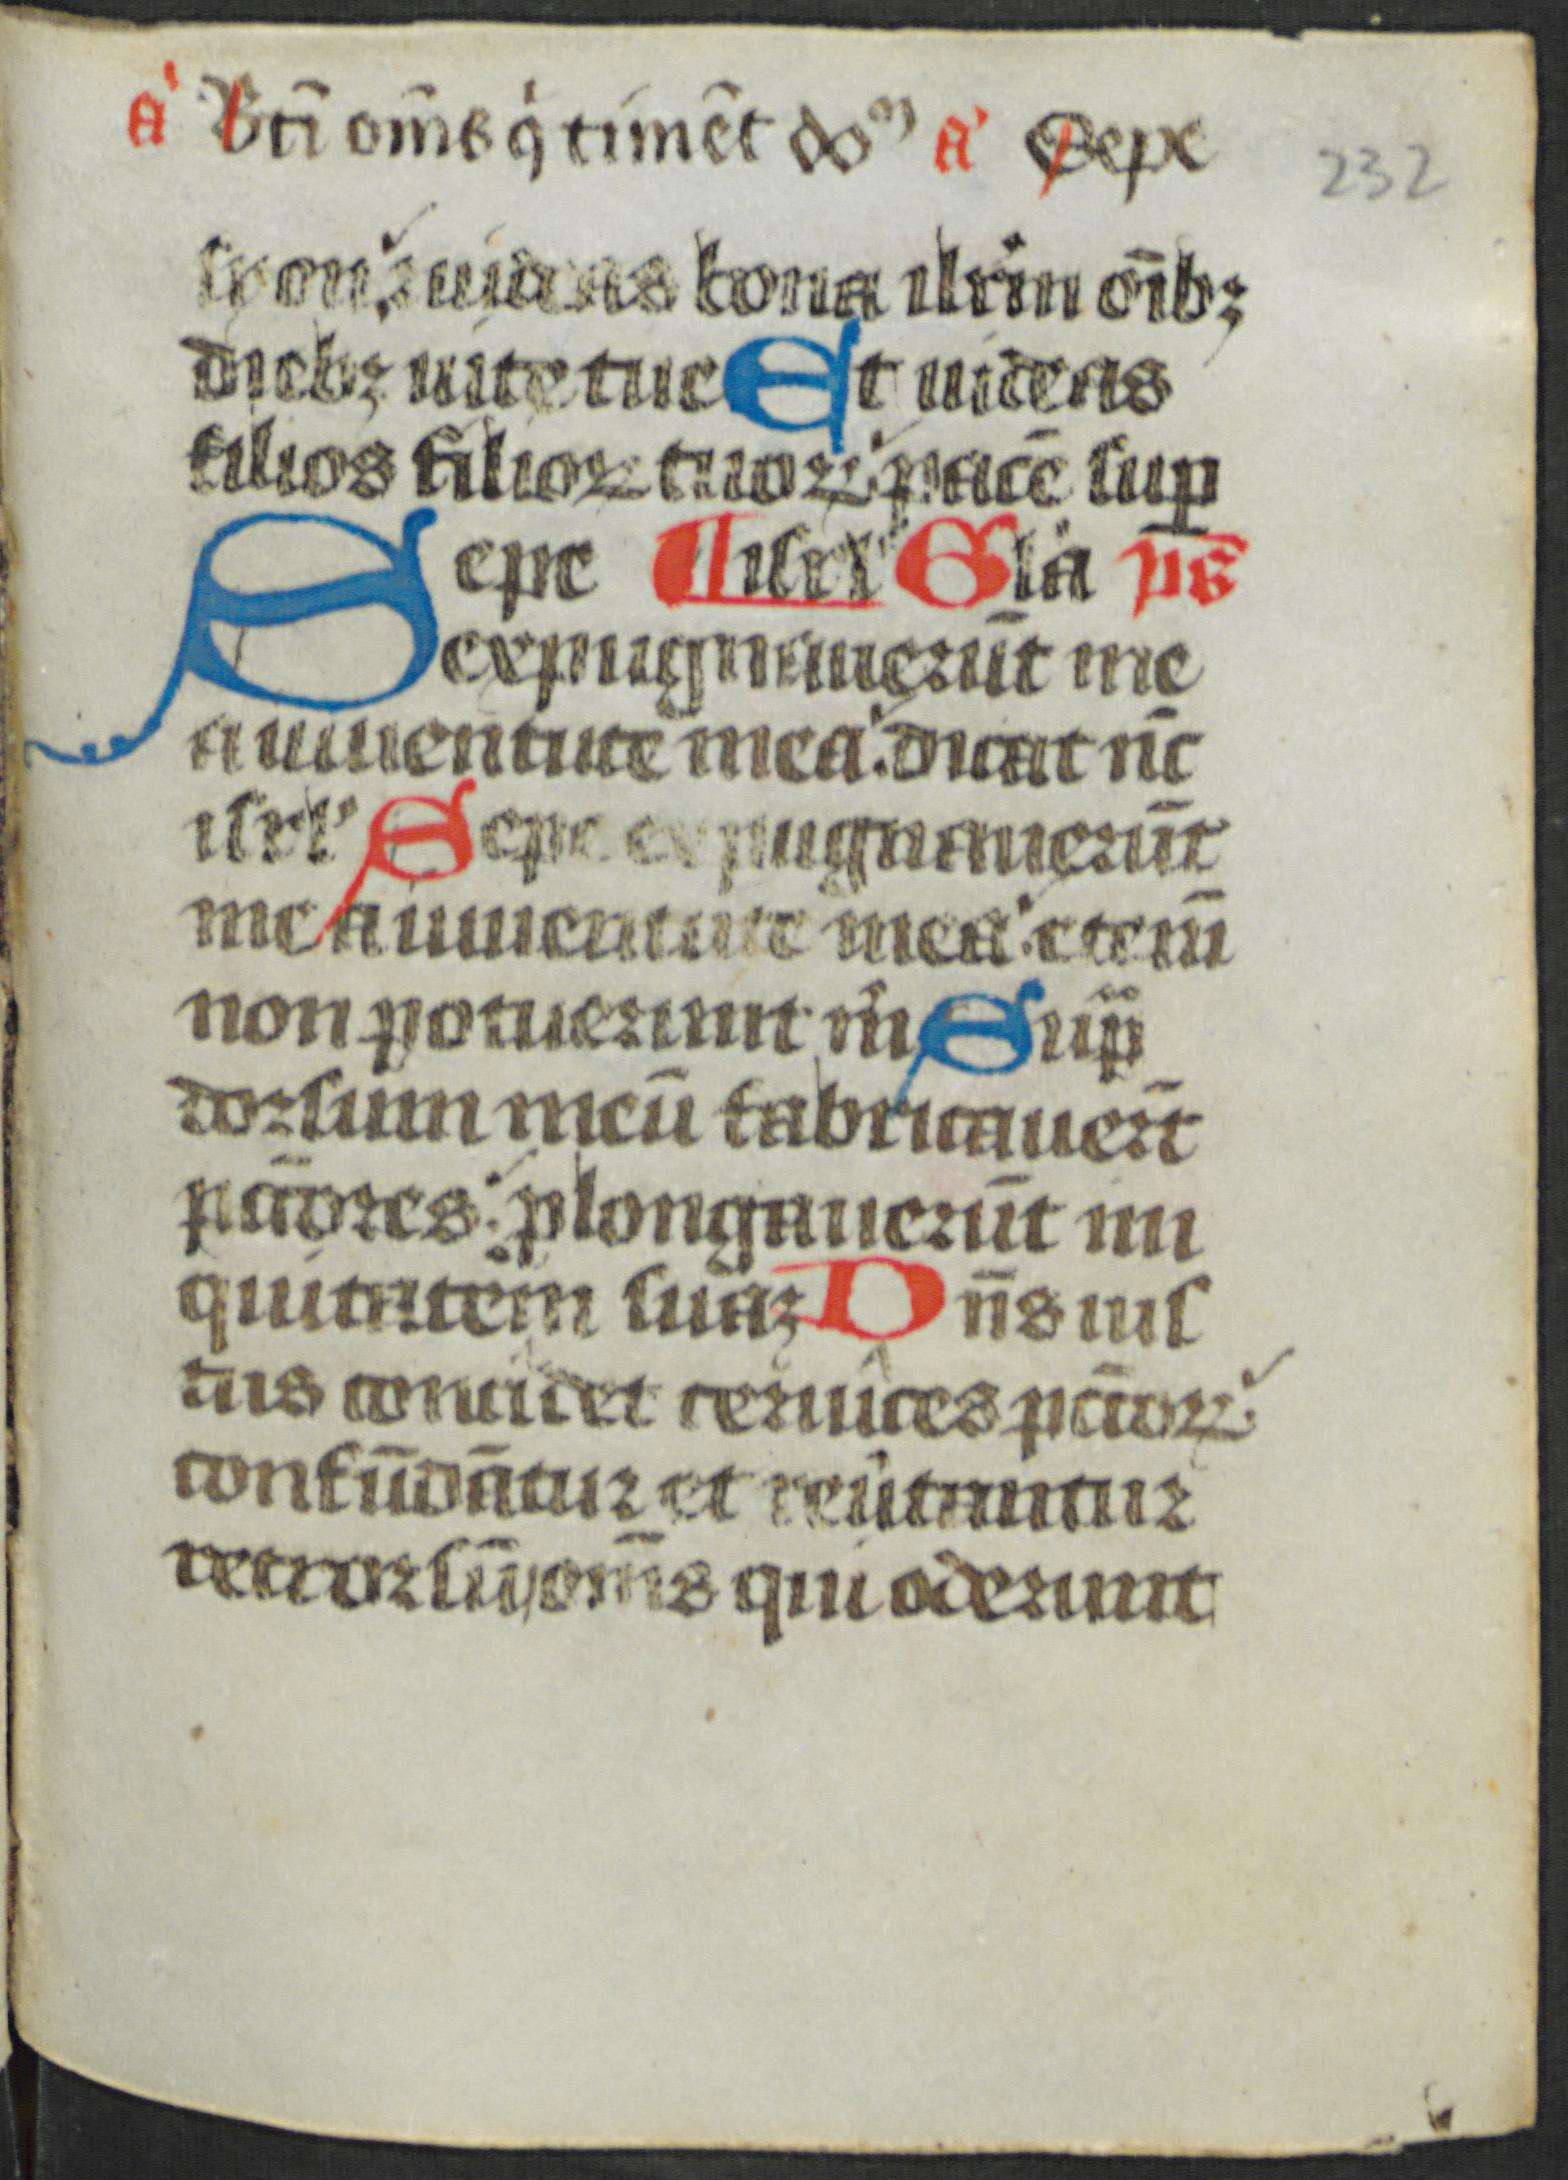 a̍ Bti̅ om̅s qͥ time̅t doᵐ a̍ Sepe
232
syon ⁊ uideas bona ihrlm o̅ibꝫ
diebꝫ uite tue Et uideas
filios filioꝝ tuoꝝ pace̅ sup̱
isrl' Gla̍ ps̅
Sepe
expugnaueru̅t me
a iuuentute mea dicat nc̅
isrl' Sepe expugnaueru̅t
me a iuuentute mea eteni̅
non potuerunt m̍ Sup̱
dorsum meu̅ fabricauer̅t
pcc̅ores ꝓlongaueru̅t ini
quitatem suaꝫ Dn̅s ius
tus concidet ceruices pcc̅oꝝ
confu̅da̅tur et reu̅tantur
retrorsu̅ om̅s qui oderunt